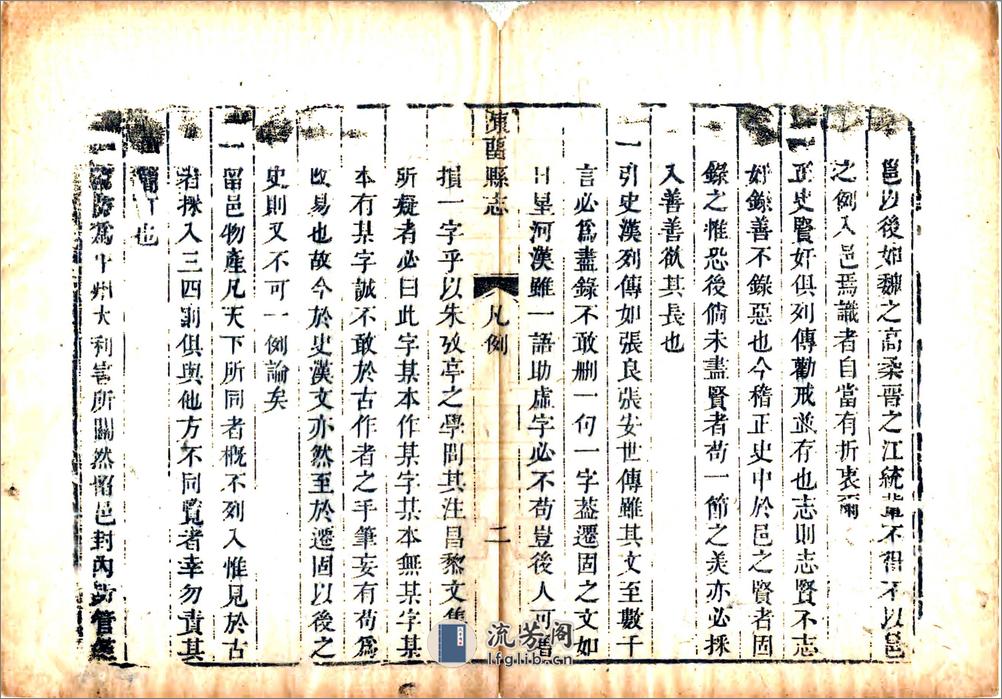 邑以後如魏之高柔晉之江統輩不得不以邑
之例入邑焉識者自當有折衷爾
一正史賢奸俱列傳勸戒並存也志則志賢不志
奸錄善不錄惡也今稽正史中於邑之賢者固
錄之惟恐後倘未盡賢者苟一節之美亦必採
入善善欲其長也
一引史漢列傳如張良張安世傳雖其文至數千
言必爲盡錄不敢删一句一字葢遷固之文如
日星河漢雖一語助虛字必不苟豈後人可
陳留縣志
凡例
二
損一字乎以朱攷亭之學問其注昌黎文集
所疑者必曰此字某本作某字某本無某字某
本有某字誠不敢於古作者之手筆妄有苟爲
改易也故今於史漢文亦然至於遷固以後之
史則又不可一例論矣
一留邑物產凡天下所同者槪不列入惟見於古
者採入三四則俱與他方不同覽者幸勿責其
也
一爲中州大利害所關然留邑封內管
流芳阁
lfglib.cn